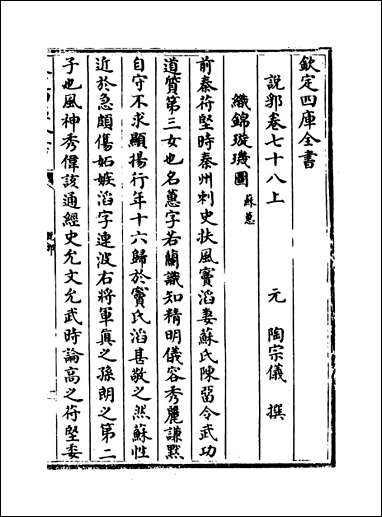 欽定四庫全書
說郛卷七十八上
元 陶宗儀 撰
織錦璇璣圖 蘇蕙
前秦苻堅時秦州刺史扶風竇滔妻蘇氏陳留令武功
道質第三女也名蕙字若蘭識知精明儀容秀麗謙黙
自守不求顯揚行年十六歸於竇氏滔甚敬之然蘇性
近於急頗傷妬嫉滔字連波右將軍真之孫朗之第二
子也風神秀偉該通經史允文允武時論高之苻堅委
說郛